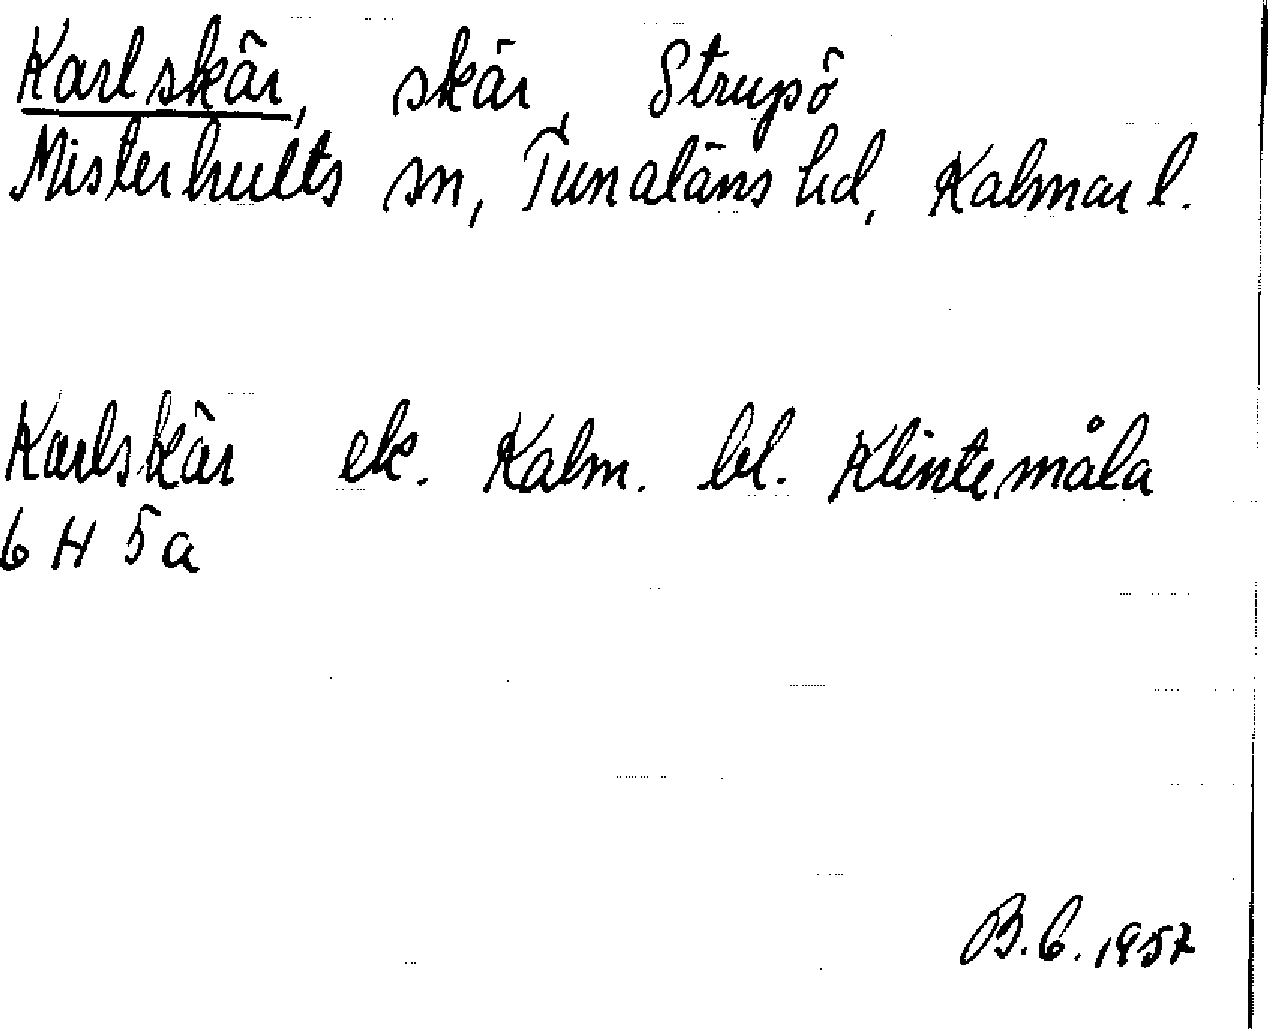 Karlskär, skär, Strupö
Misterhults sn, Tunaläns hd, Kalmar l.
Karlskär ek. Kalm. bl. Klintemåla
6 H 5a
B.C. 1957